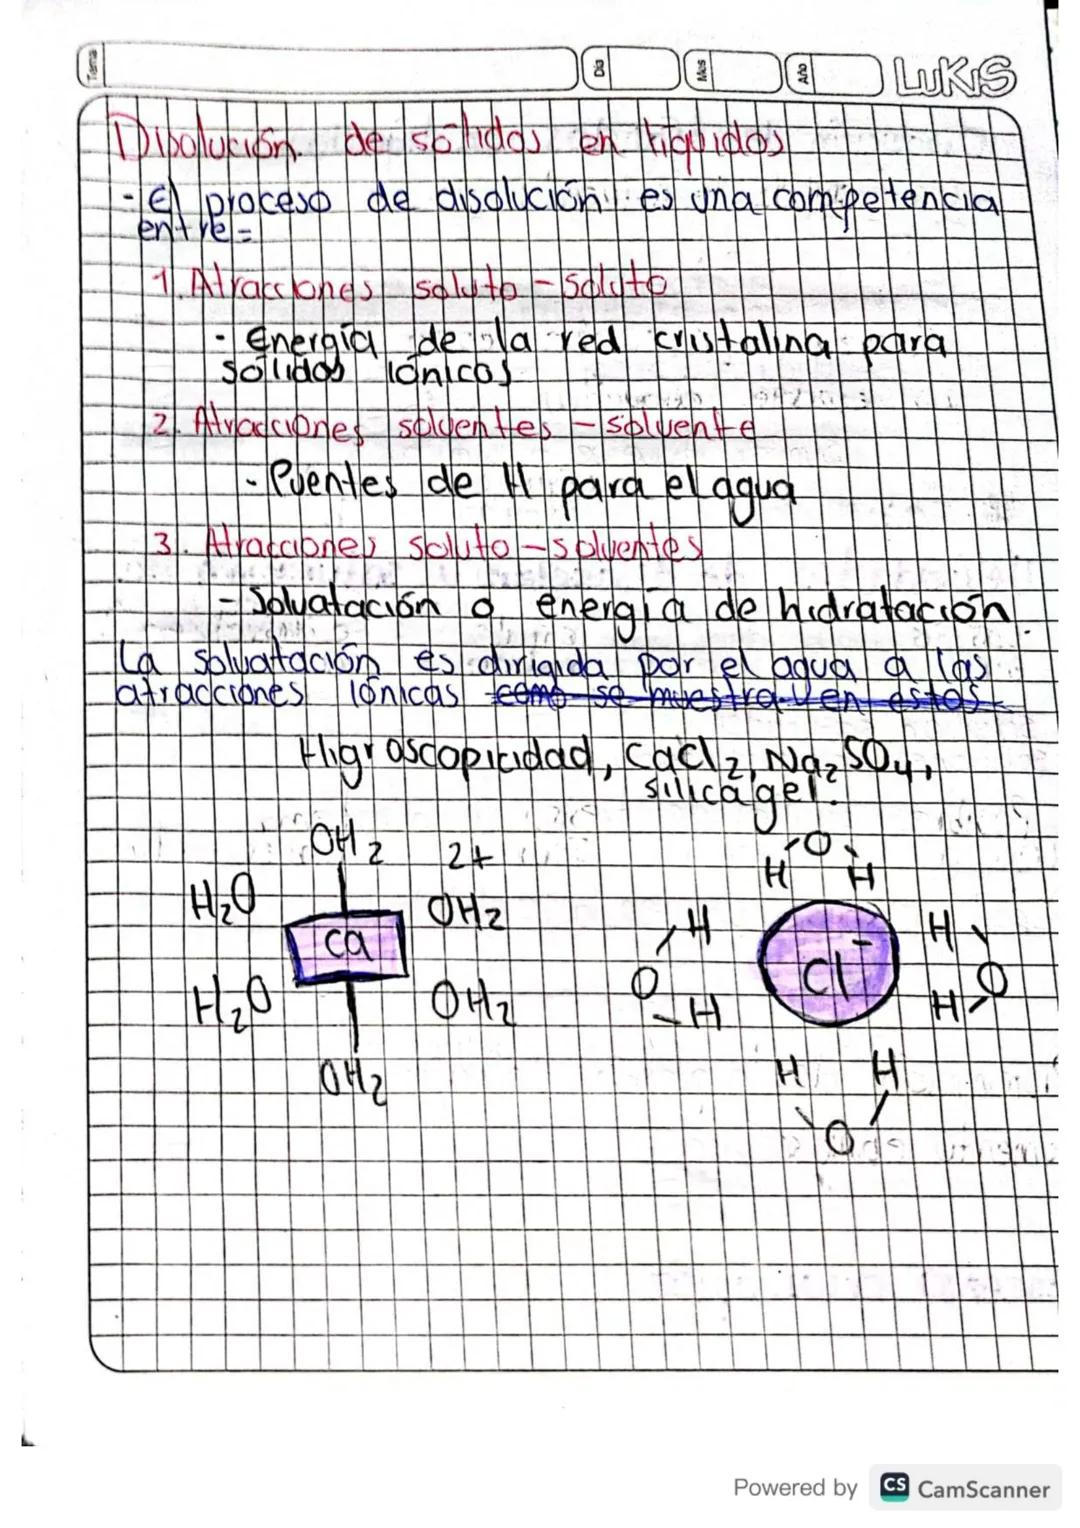 Tema Día Mes Año LUKIS
Disolución de sólidos en líquidos
- El proceso de disolución es una competencia
entre=
1. Atracciones soluto - soluto
- Energía de la red cristalina para
sólidos iónicos
2. Atracciones solventes - solvente
- Puentes de H para el agua
3. Atracciones soluto - solventes
- Solvatación o energía de hidratación.
La solvatación es dirigida por el agua a las
atracciones iónicas como se muestra en estas
Higroscopicidad, CaCl₂, Na₂SO₄,
silica gel.
OH₂ 2+ O
H H
H₂O OH₂ H H
Ca Cl⁻
H₂O OH₂ O H H O
OH₂ H H
O
Powered by CS CamScanner